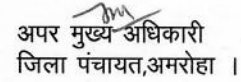 अपर मुख्य अधिकारी
जिला पंचायत,अमरोहा ।